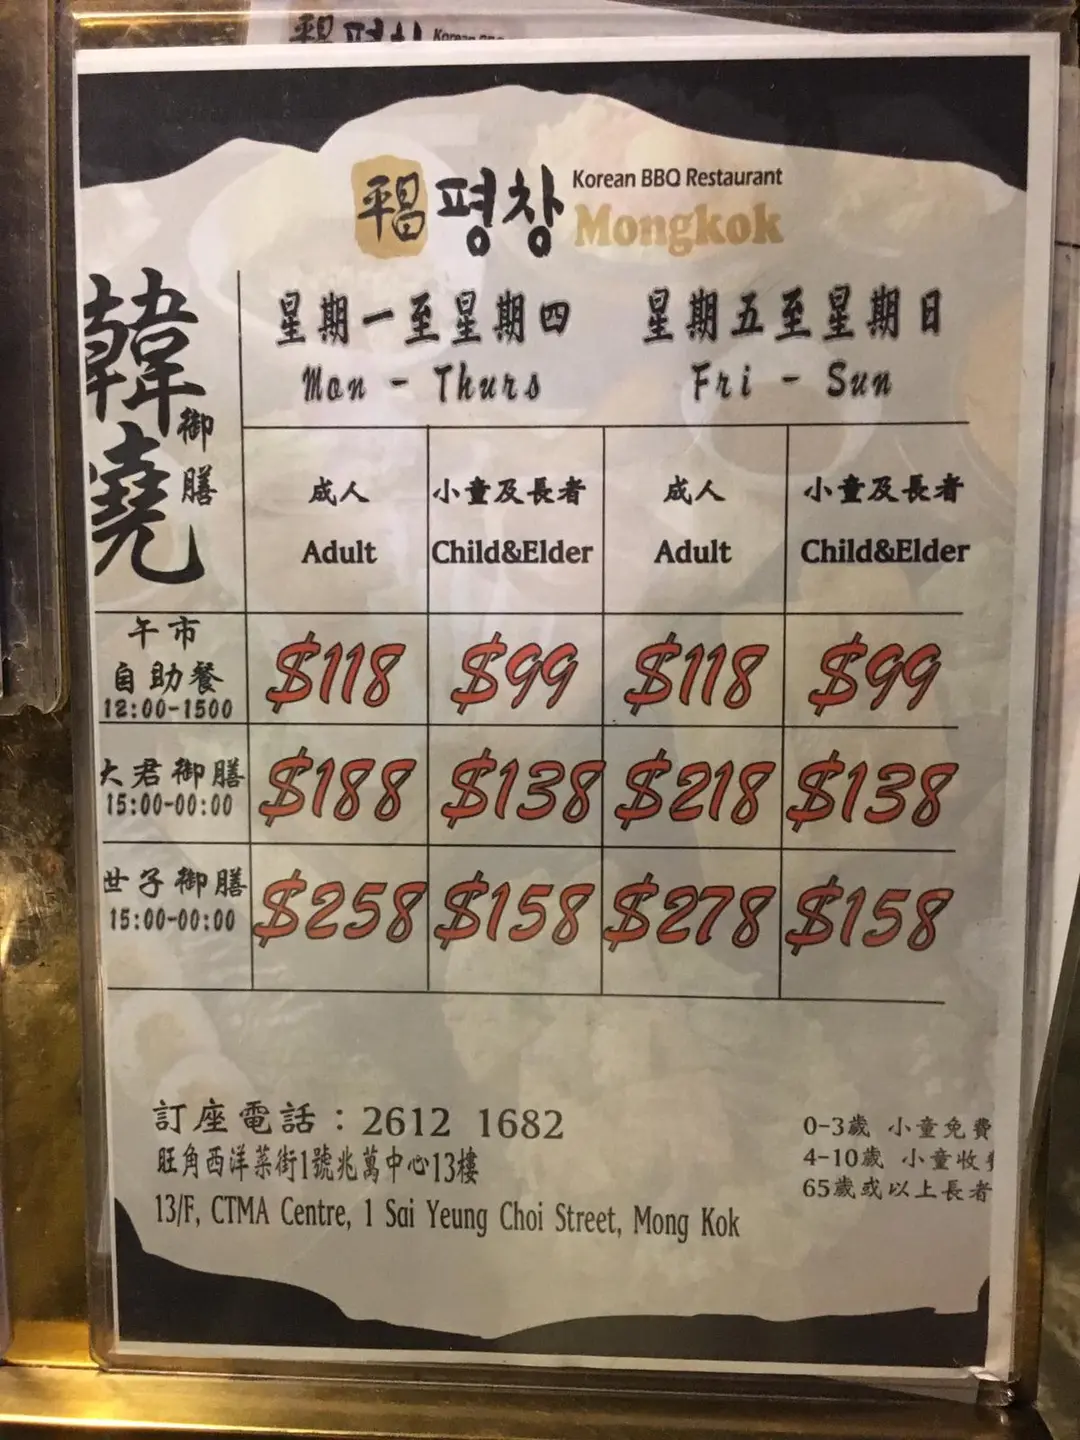 平昌 평창 Korean BBQ Restaurant
Mongkok
韓燒 御膳
星期一至星期四 星期五至星期日
Mon - Thurs Fri - Sun
成人 小童及長者 成人 小童及長者
Adult Child&Elder Adult Child&Elder
午市
自助餐
12:00-1500 $118 $99 $118 $99
大君御膳
15:00-00:00 $188 $138 $218 $138
世子御膳
15:00-00:00 $258 $158 $278 $158
訂座電話：2612 1682
旺角西洋菜街1號兆萬中心13樓
13/F, CTMA Centre, 1 Sai Yeung Choi Street, Mong Kok
0-3歲 小童免費
4-10歲 小童收
65歲或以上長者